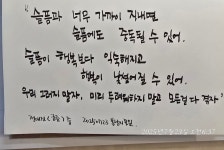 "슬픔과 너무 가까이 지내면
슬픔에도 중독될 수 있어.
슬픔이 행복보다 익숙해지고
행복이 낯설어질 수 있어.
우리 그러지 말자. 미리 두려워하지 말고 모든걸 다 겪자"